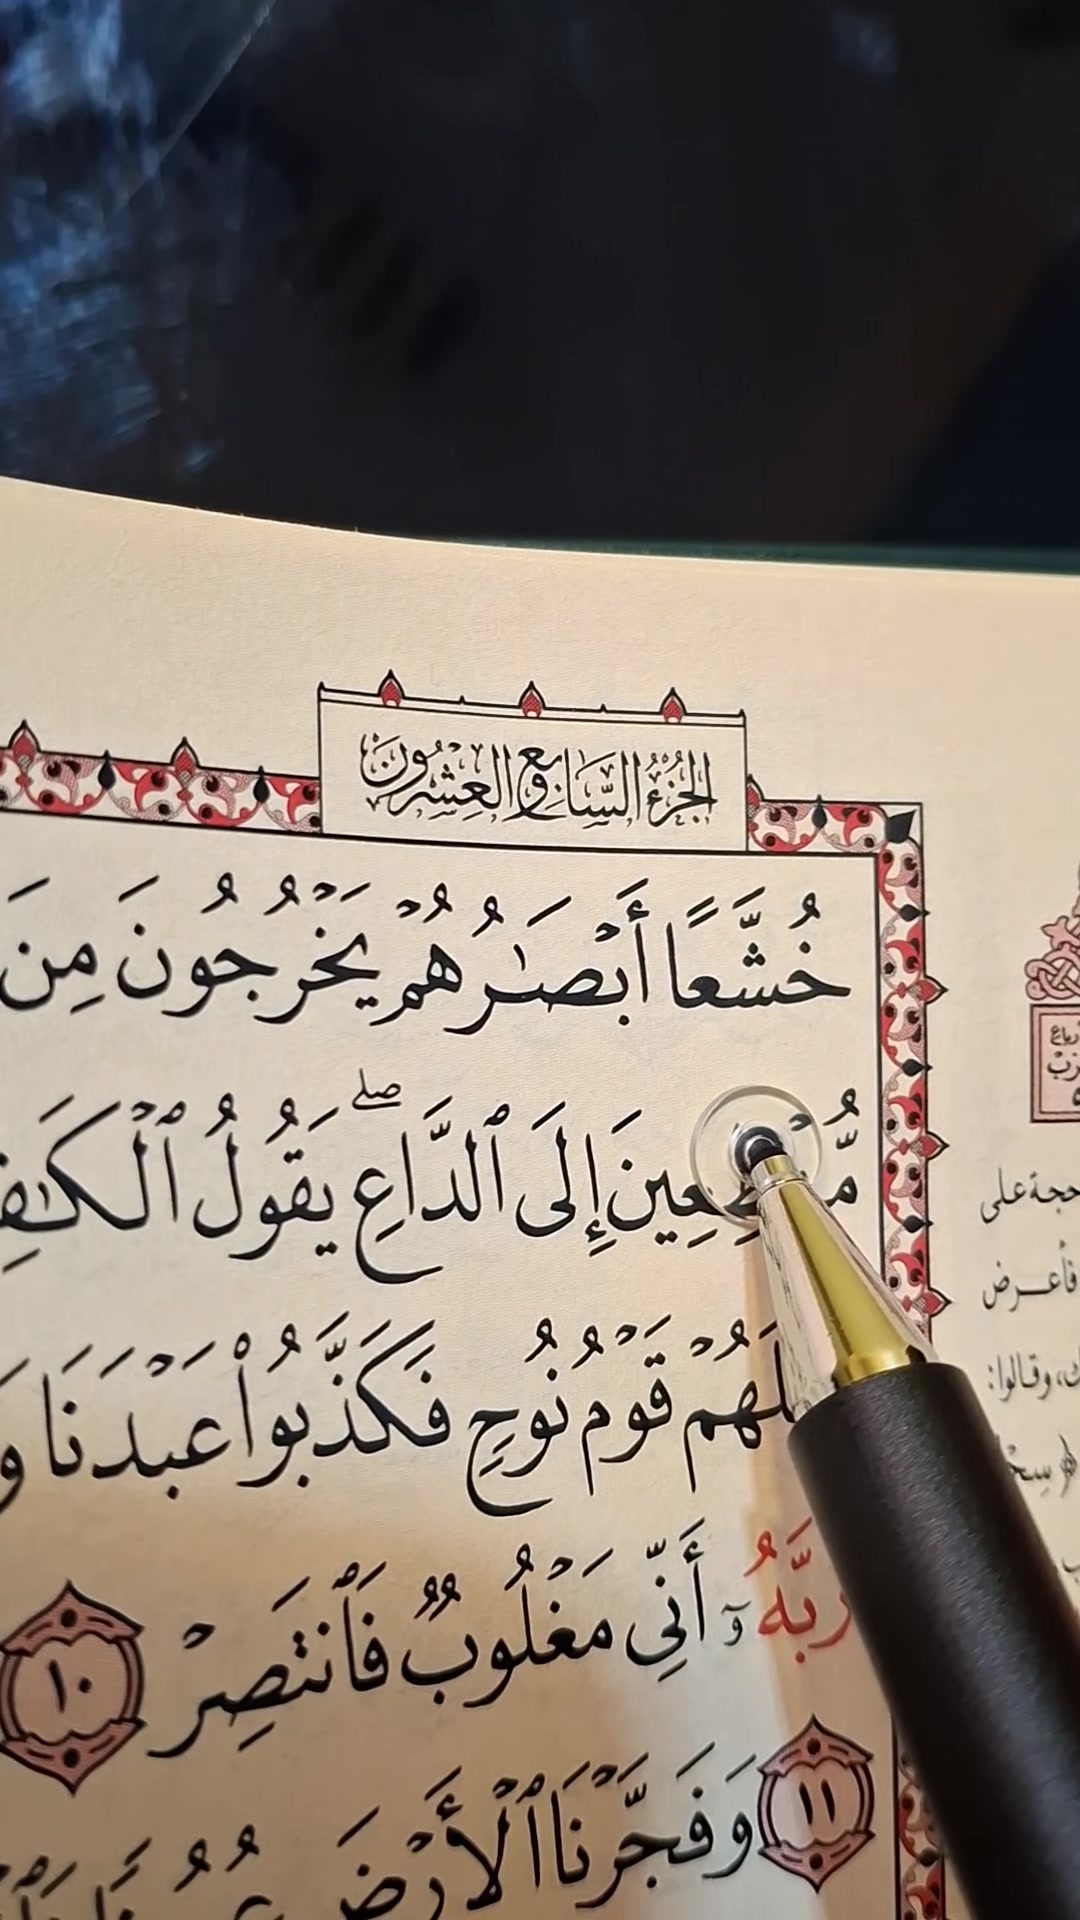 الجُزْءُ السَّابِع وَالعِشْرُونَ
خُشَّعًا أَبْصَٰرُهُمْ يَخْرُجُونَ مِنَ
إِلَى ٱلدَّاعِ ۖ يَقُولُ
قَوْمُ نُوحٍ فَكَذَّبُوا۟ عَبْدَنَا وَ
رَبَّهُۥٓ أَنِّى مَغْلُوبٌ فَٱنتَصِرْ ١٠
١١ وَفَجَّرْنَا ٱلْأَرْضَ
حجة على
فأعرض
وقالوا: